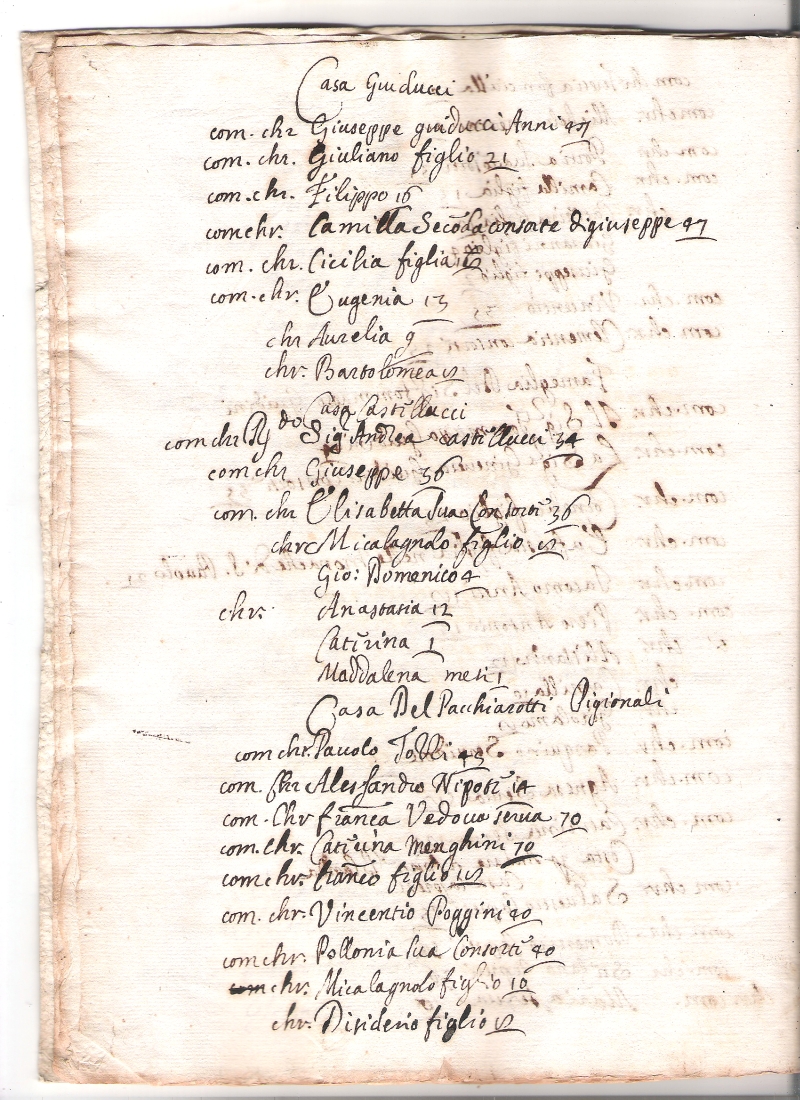 Casa Guiducci
com. chr Giuseppe guiducci Anni 47
com. chr. Giuliano figlio 21
com. chr. Filippo 16
com chr. Camilla Secoda consorte di giuseppe 47
com. chr. Cicilia figlia
com. chr. Eugenia 13
chr Aurelia 9
chr. Bartolomea
Casa Castillucci
com chr R do Sig Andrea castillucci 34
com chr Giuseppe 36
com. chr Elisabetta sua Consorte 36
chr Micalagnolo figlio
Gio: Domenico 4
chr. Anastasia 12
Caterina 1
Maddalena mesi 1
Casa Del Pacchiarotti Pigionali
com chr. Pauolo Tobli 45
com. Chr Alessandro Nipote 14
com. Chr franca Vedoua serua 70
com. chr. Caterina Menghini 70
com chr. franco figlio
com. chr. Vincentio Poggini 40
com chr. Pollonia sua Consorte 40
com chr. Micalagnolo figlio 10
chr. Disiderio figlio